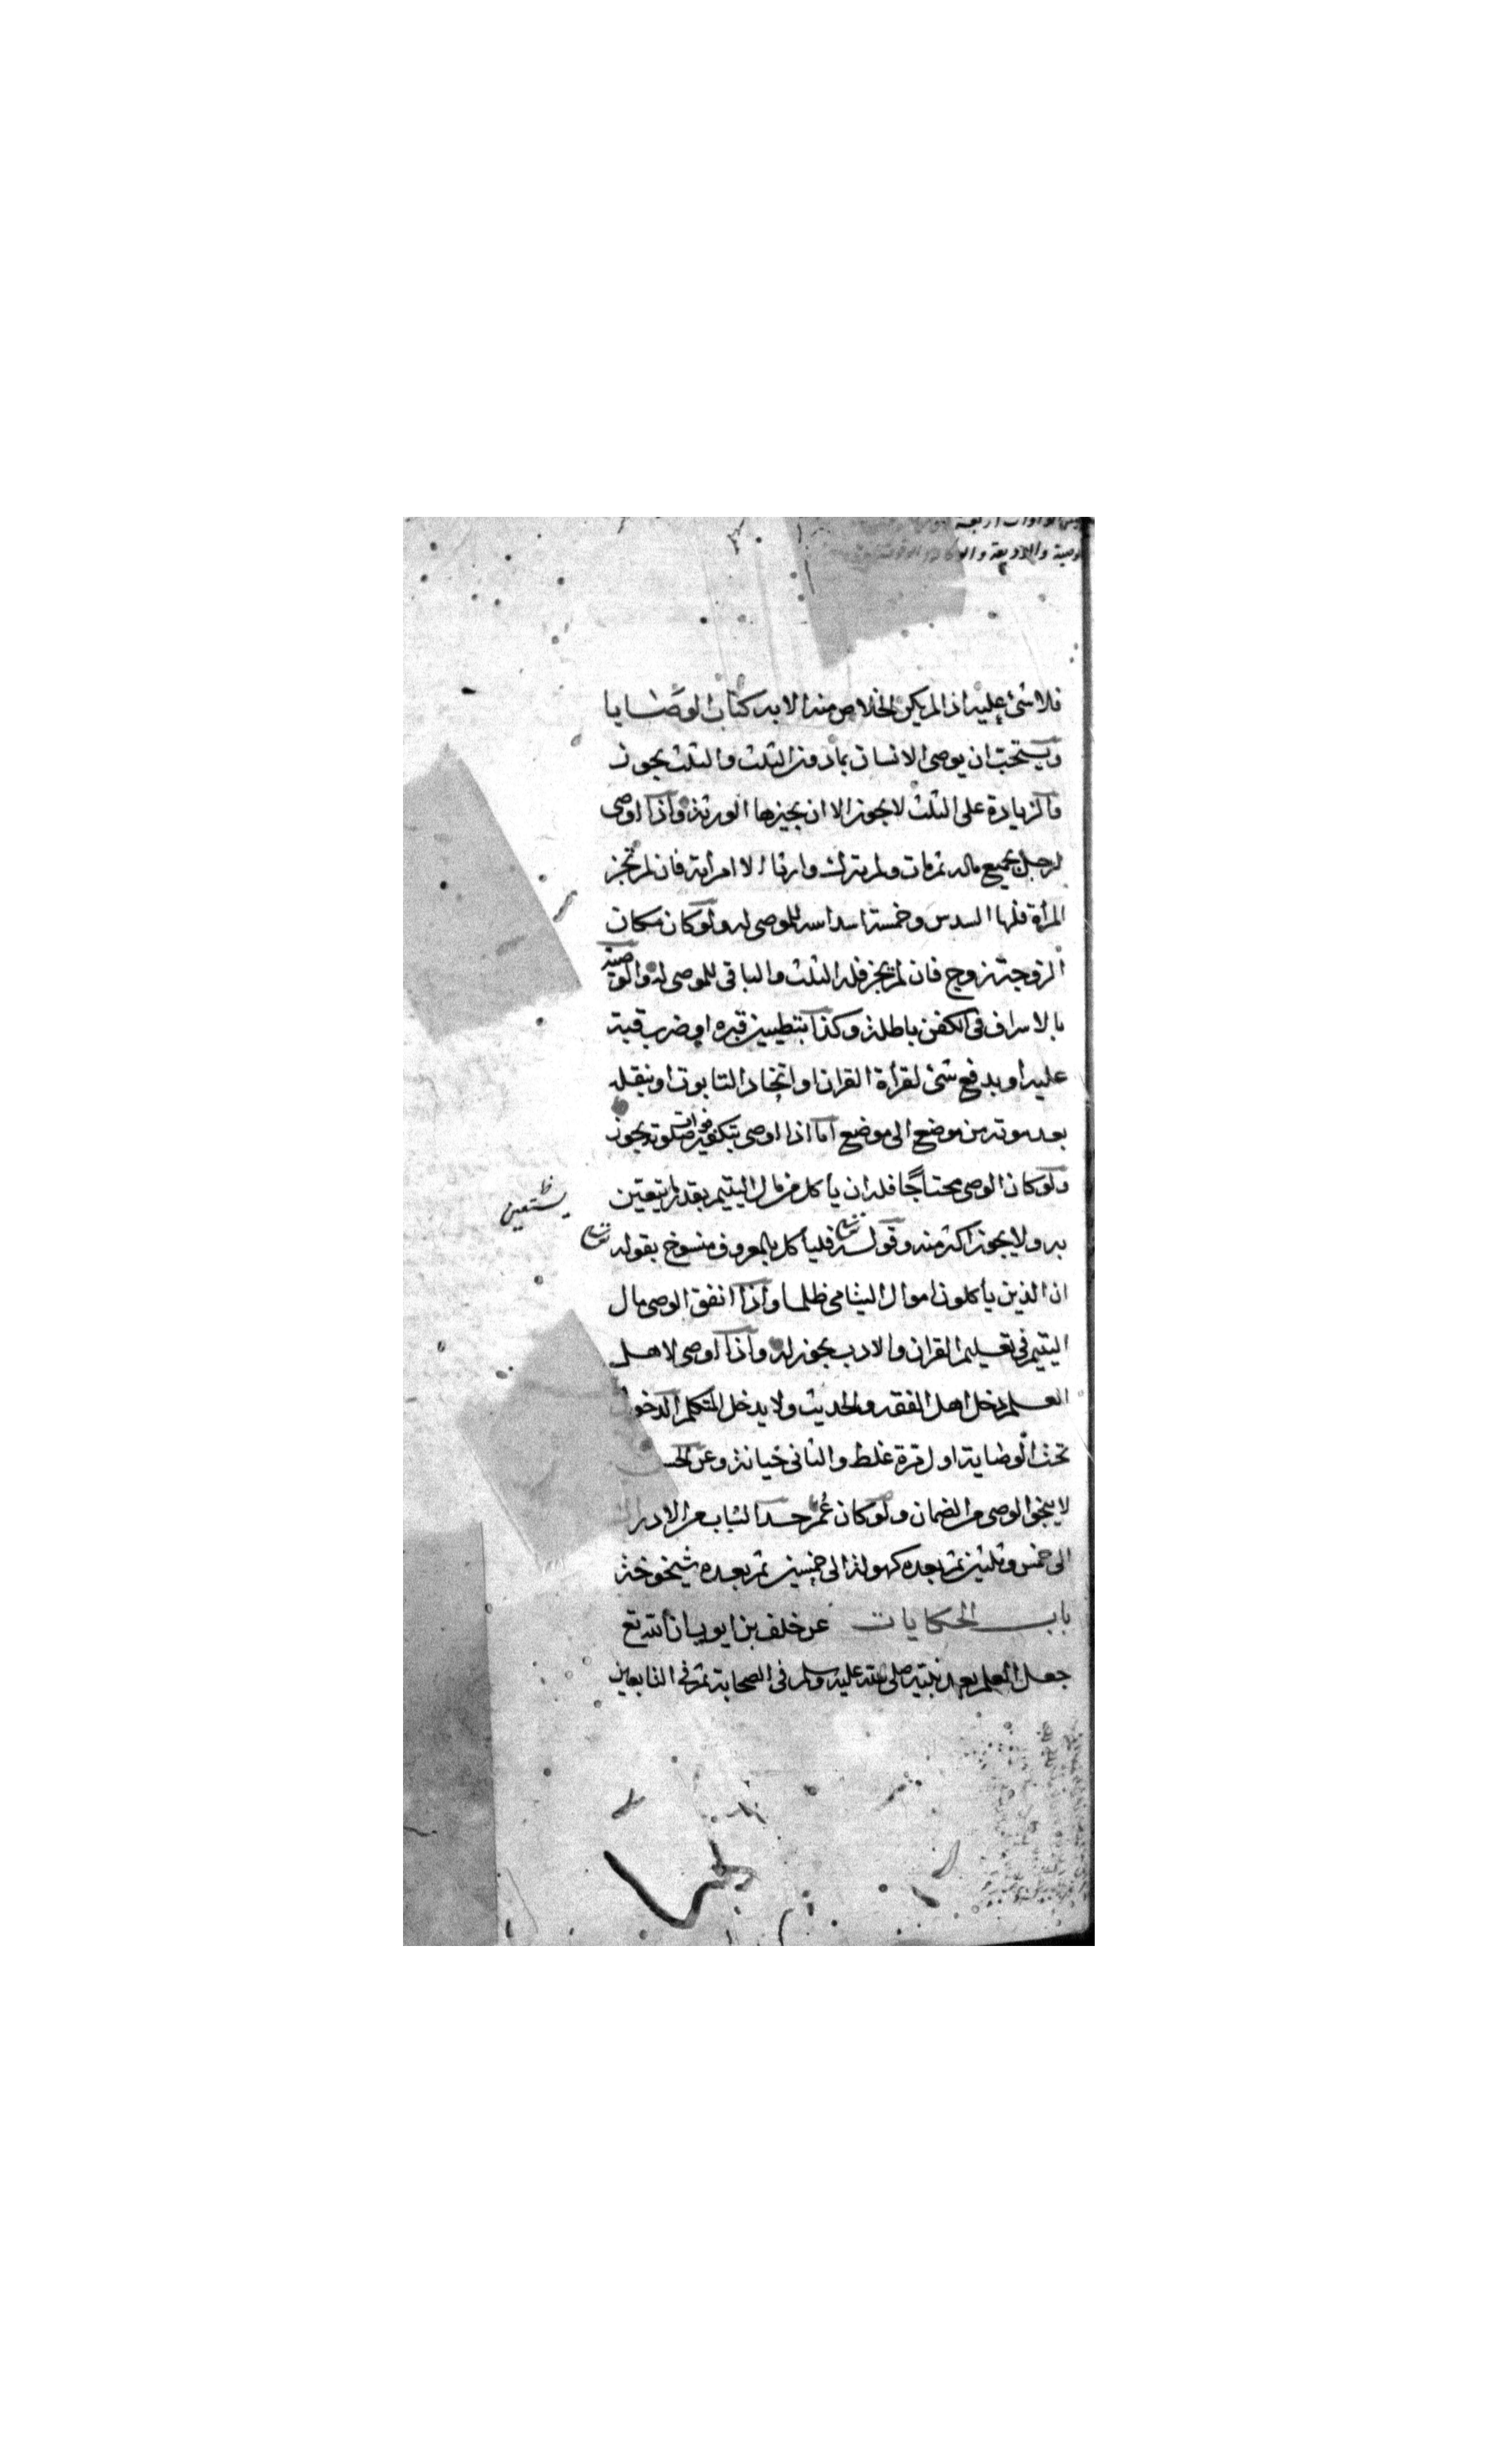 وصية والوديعة والوكالة
فلاشئ عليه اذا لم يكن الخلاص منه الا به كتاب الوصايا
ويستحب ان يوصى الانسان بمادون الثلث والثلث يجوز
والزيادة على الثلث لا يجوز الا ان يجيزها الورثة واذا اوصى
لرجل بجميع ماله ثم مات ولم يترك وارثا الا امرأته فان لم تجز
المرأة فلها السدس وخمسة اسداسه للموصى له ولو كان مكان
الزوجة زوج فان لم يجز فله الثلث والباقى للموصى له والوصية
بالاسراف فى الكفن باطلة وكذا بتطيين قبره او ضرب قبة
عليه او بدفع شئ لقرأة القران او اتخاذ التابوت او بنقله
بعد موته من موضع الى موضع اما اذا اوصى بتكفير فوائت صلوته يجوز
ولو كان الوصى محتاجا فله ان يأكل من مال اليتيم بقدر ما يتعين
يستعين
به ولا يجوز اكثر منه وقوله تعالى فليأكل بالمعروف منسوخ بقوله تعالى
ان الذين يأكلون اموال اليتامى ظلما واذا انفق الوصى مال
اليتيم فى تعليم القران والادب يجوز له واذا اوصى لاهل
العلم دخل اهل الفقه والحديث ولا يدخل المتكلم الدخول
تحت الوصاية اول مرة غلط والثانى خيانة وعن الحسن
لا ينجو الوصى من الضمان ولو كان عمر حد الشباب من الادراك
الى خمس وثلثين ثم بعده كهولة الى خمسين ثم بعده شيخوخة
باب الحكايات عن خلف بن ايوب ان الله تع
جعل العلم بعد نبيه صلى الله عليه وسلم فى الصحابة ثم فى التابعين